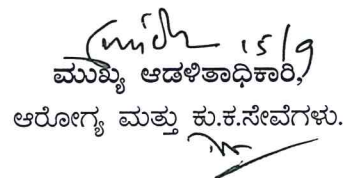 15/9
ಮುಖ್ಯ ಆಡಳಿತಾಧಿಕಾರಿ,
ಆರೋಗ್ಯ ಮತ್ತು ಕು.ಕ.ಸೇವೆಗಳು.